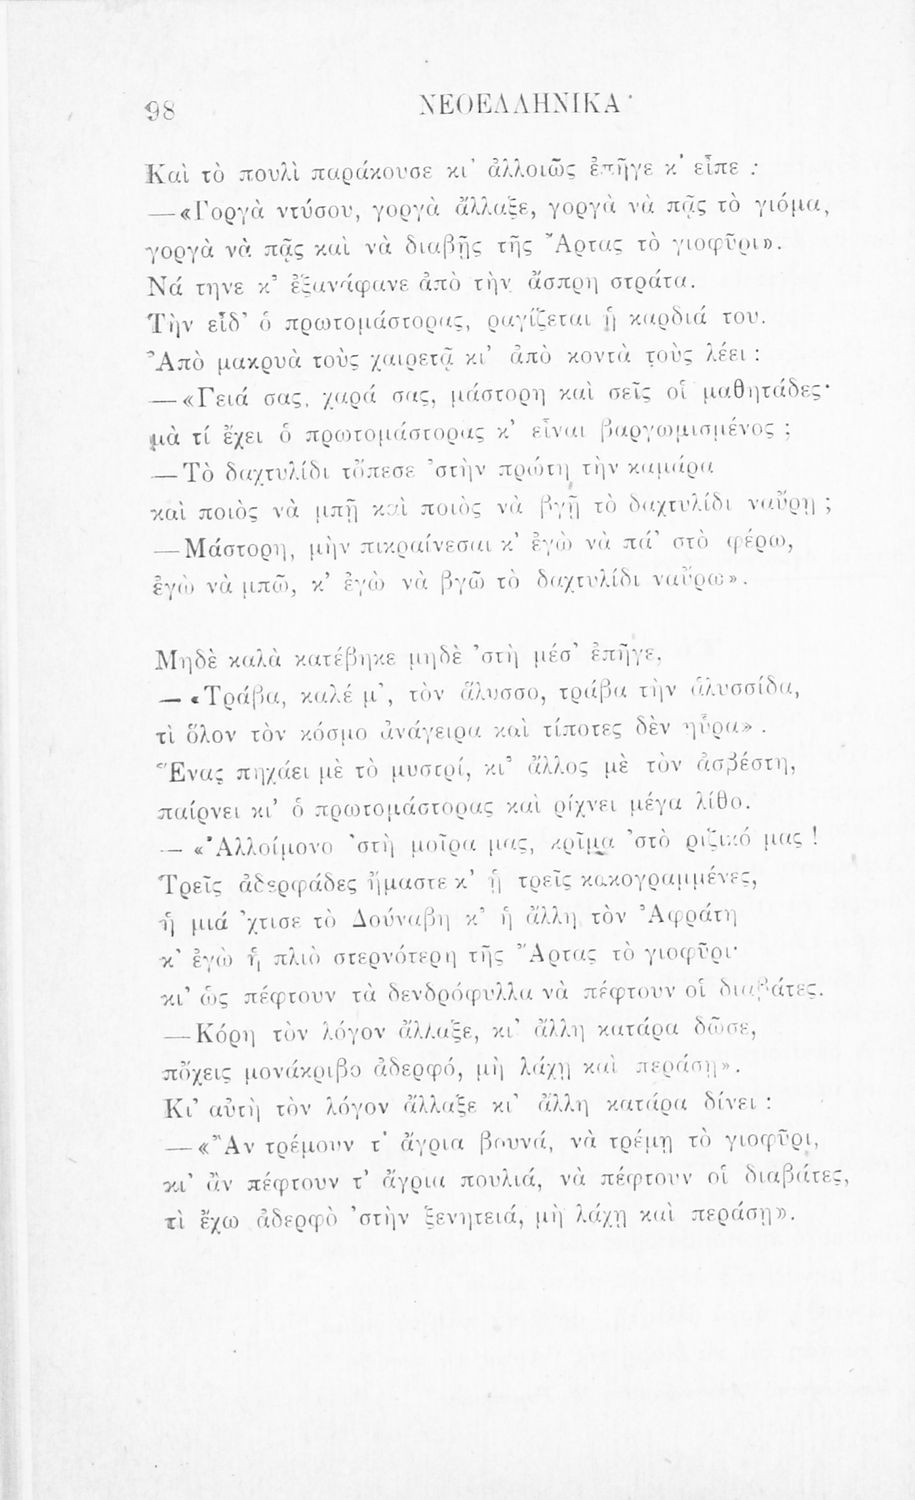 98
ΝΕΟΕΛΛΗΝΙΚΑ
Καὶ τὸ πουλὶ παράκουσε κι' ἀλλοιῶς ἐπῆγε κ' εἶπε :
—«Γοργὰ ντύσου, γοργὰ ἄλλαξε, γοργὰ νὰ πᾷς τὸ γιόμα,
γοργὰ νὰ πᾷς καὶ νὰ διαβῇς τῆς Ἄρτας τὸ γιοφῦρι».
Νά τηνε κ' ἐξανάφανε ἀπὸ τὴν ἄσπρη στράτα.
Τὴν εἶδ' ὁ πρωτομάστορας, ραγίζεται ἡ καρδιά του.
Ἀπὸ μακρυὰ τοὺς χαιρετᾷ κι' ἀπὸ κοντὰ τοὺς λέει :
—«Γειά σας, χαρά σας, μάστορη καὶ σεῖς οἱ μαθητάδες·
μὰ τί ἔχει ὁ πρωτομάστορας κ' εἶναι βαργωμισμένος ;
—Τὸ δαχτυλίδι τὄπεσε 'στὴν πρώτη τὴν καμάρα
καὶ ποιὸς νὰ μπῇ καὶ ποιὸς νὰ βγῇ τὸ δαχτυλίδι ναὔρῃ ;
—Μάστορη, μὴν πικραίνεσαι κ' ἐγὼ νὰ πά' στὸ φέρω,
ἐγὼ νὰ μπῶ, κ' ἐγὼ νὰ βγῶ τὸ δαχτυλίδι ναὔρω».
Μηδὲ καλὰ κατέβηκε μηδὲ 'στὴ μέσ' ἐπῆγε,
—«Τράβα, καλέ μ', τὸν ἅλυσσο, τράβα τὴν ἁλυσσίδα,
τὶ ὅλον τὸν κόσμο ἀνάγειρα καὶ τίποτες δὲν ηὗρα» .
Ἕνας πηχάει μὲ τὸ μυστρί, κι' ἄλλος μὲ τὸν ἀσβέστη,
παίρνει κι' ὁ πρωτομάστορας καὶ ρίχνει μέγα λίθο.
—«Ἀλλοίμονο 'στὴ μοῖρα μας, κρῖμα 'στὸ ριζικό μας !
Τρεῖς ἀδερφάδες ἤμαστε κ' ἡ τρεῖς κακογραμμένες,
ἡ μιά 'χτισε τὸ Δούναβη κ' ἡ ἄλλη τὸν Ἀφράτη
κ' ἐγὼ ἡ πλιὸ στερνότερη τῆς Ἄρτας τὸ γιοφῦρι·
κι' ὡς πέφτουν τὰ δενδρόφυλλα νὰ πέφτουν οἱ διαβάτες.
—Κόρη τὸν λόγον ἄλλαξε, κι' ἄλλη κατάρα δῶσε,
πὄχεις μονάκριβο ἀδερφό, μὴ λάχῃ καὶ περάσῃ».
Κι' αὐτὴ τὸν λόγον ἄλλαξε κι' ἄλλη κατάρα δίνει :
—«Ἂν τρέμουν τ' ἄγρια βουνά, νὰ τρέμῃ τὸ γιοφῦρι,
κι' ἂν πέφτουν τ' ἄγρια πουλιά, νὰ πέφτουν οἱ διαβάτες,
τὶ ἔχω ἀδερφὸ 'στὴν ξενητειά, μὴ λάχῃ καὶ περάσῃ».